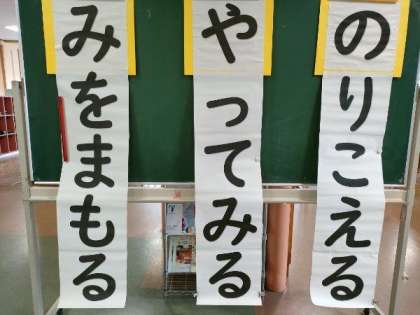 のりこえる
やってみる
みをまもる